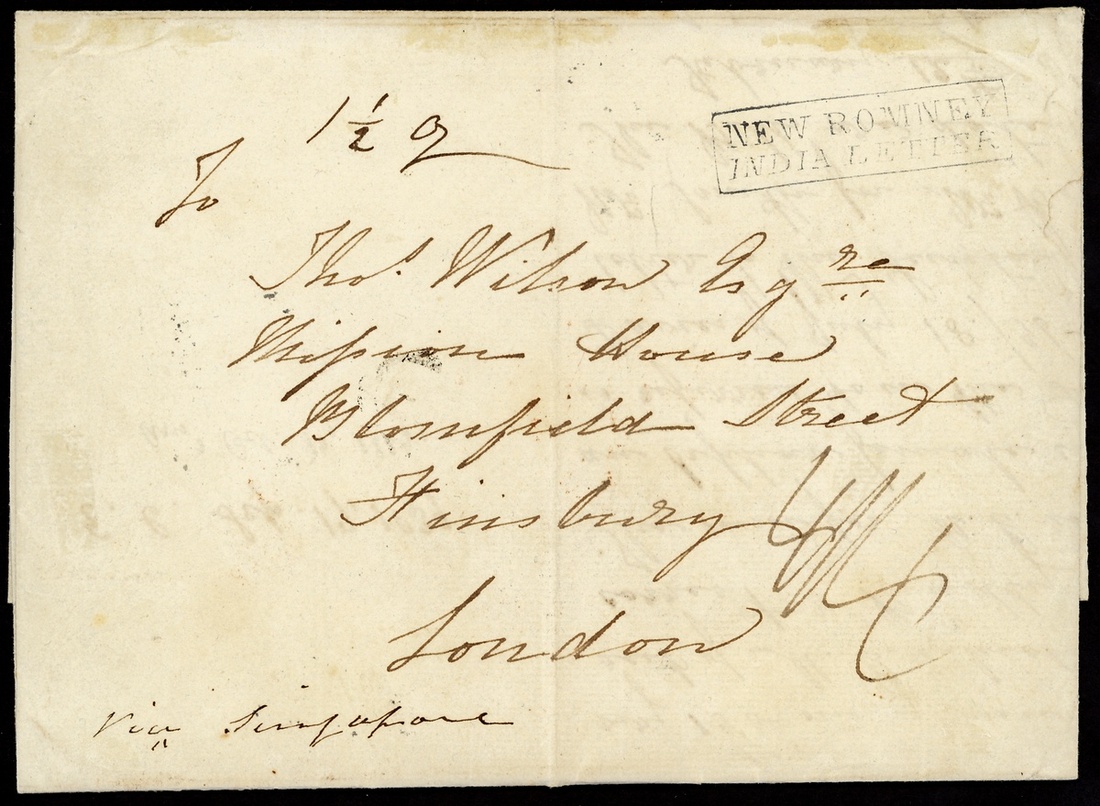 1 1/2 oz
NEW ROMNEY
INDIA LETTER
To
Thos. Wilson Esqre
Mission House
Blomfield Street
Finsbury
London
via Singapore